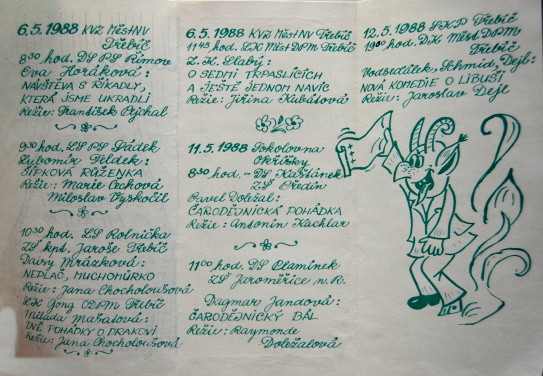 6.5.1988 KVZ MěstNV
Třebíč
8³⁰ hod. DS PS Římov
Eva Horáková:
NÁVŠTĚVA S ŘÍKADLY,
KTERÁ JSME UKRADLI
Režie: František Pejchal
9³⁰ hod. LS PS Sádek
Lubomír Feldek:
ŠÍPKOVÁ RŮŽENKA
Režie: Marie Čechová
Miloslav Vyskočil
10³⁰ hod. LS Rolnička
ZŠ kpt. Jaroše Třebíč
Daisy Mrázková:
NEPLAČ, MUCHOMŮRKO
Režie: Jana Chocholoušová
LK Gong ODPM Třebíč
Milada Mašatová:
DNĚ POHÁDKY O DRAKOVI
Režie: Jana Chocholoušová
6.5.1988 KVZ MěstNV Třebíč
11⁴⁵ hod. LK Měst DPM Třebíč
Z. K. Slabý:
O SEDMI TRPASLÍCÍCH
A JEŠTĚ JEDNOM NAVÍC
Režie: Jiřina Kubátová
11.5.1988 Sokolovna
Okříšky
8³⁰ hod. - DS Kaštánek
ZŠ Předín
Pavel Doležal:
ČARODĚJNICKÁ POHÁDKA
Režie: Antonín Kachlar
11⁰⁰ hod. DS Plamínek
ZŠ Jaroměřice n. R.
Dagmar Jandová:
ČARODĚJNICKÝ BÁL
Režie: Raymonde
Doležalová
12.5.1988 SKP Třebíč
19⁰⁰ hod. DK Měst DPM
Třebíč
Vodseďálek, Schmid, Dejl:
NOVÁ KOMEDIE O LIBUŠI
Režie: Jaroslav Dejl